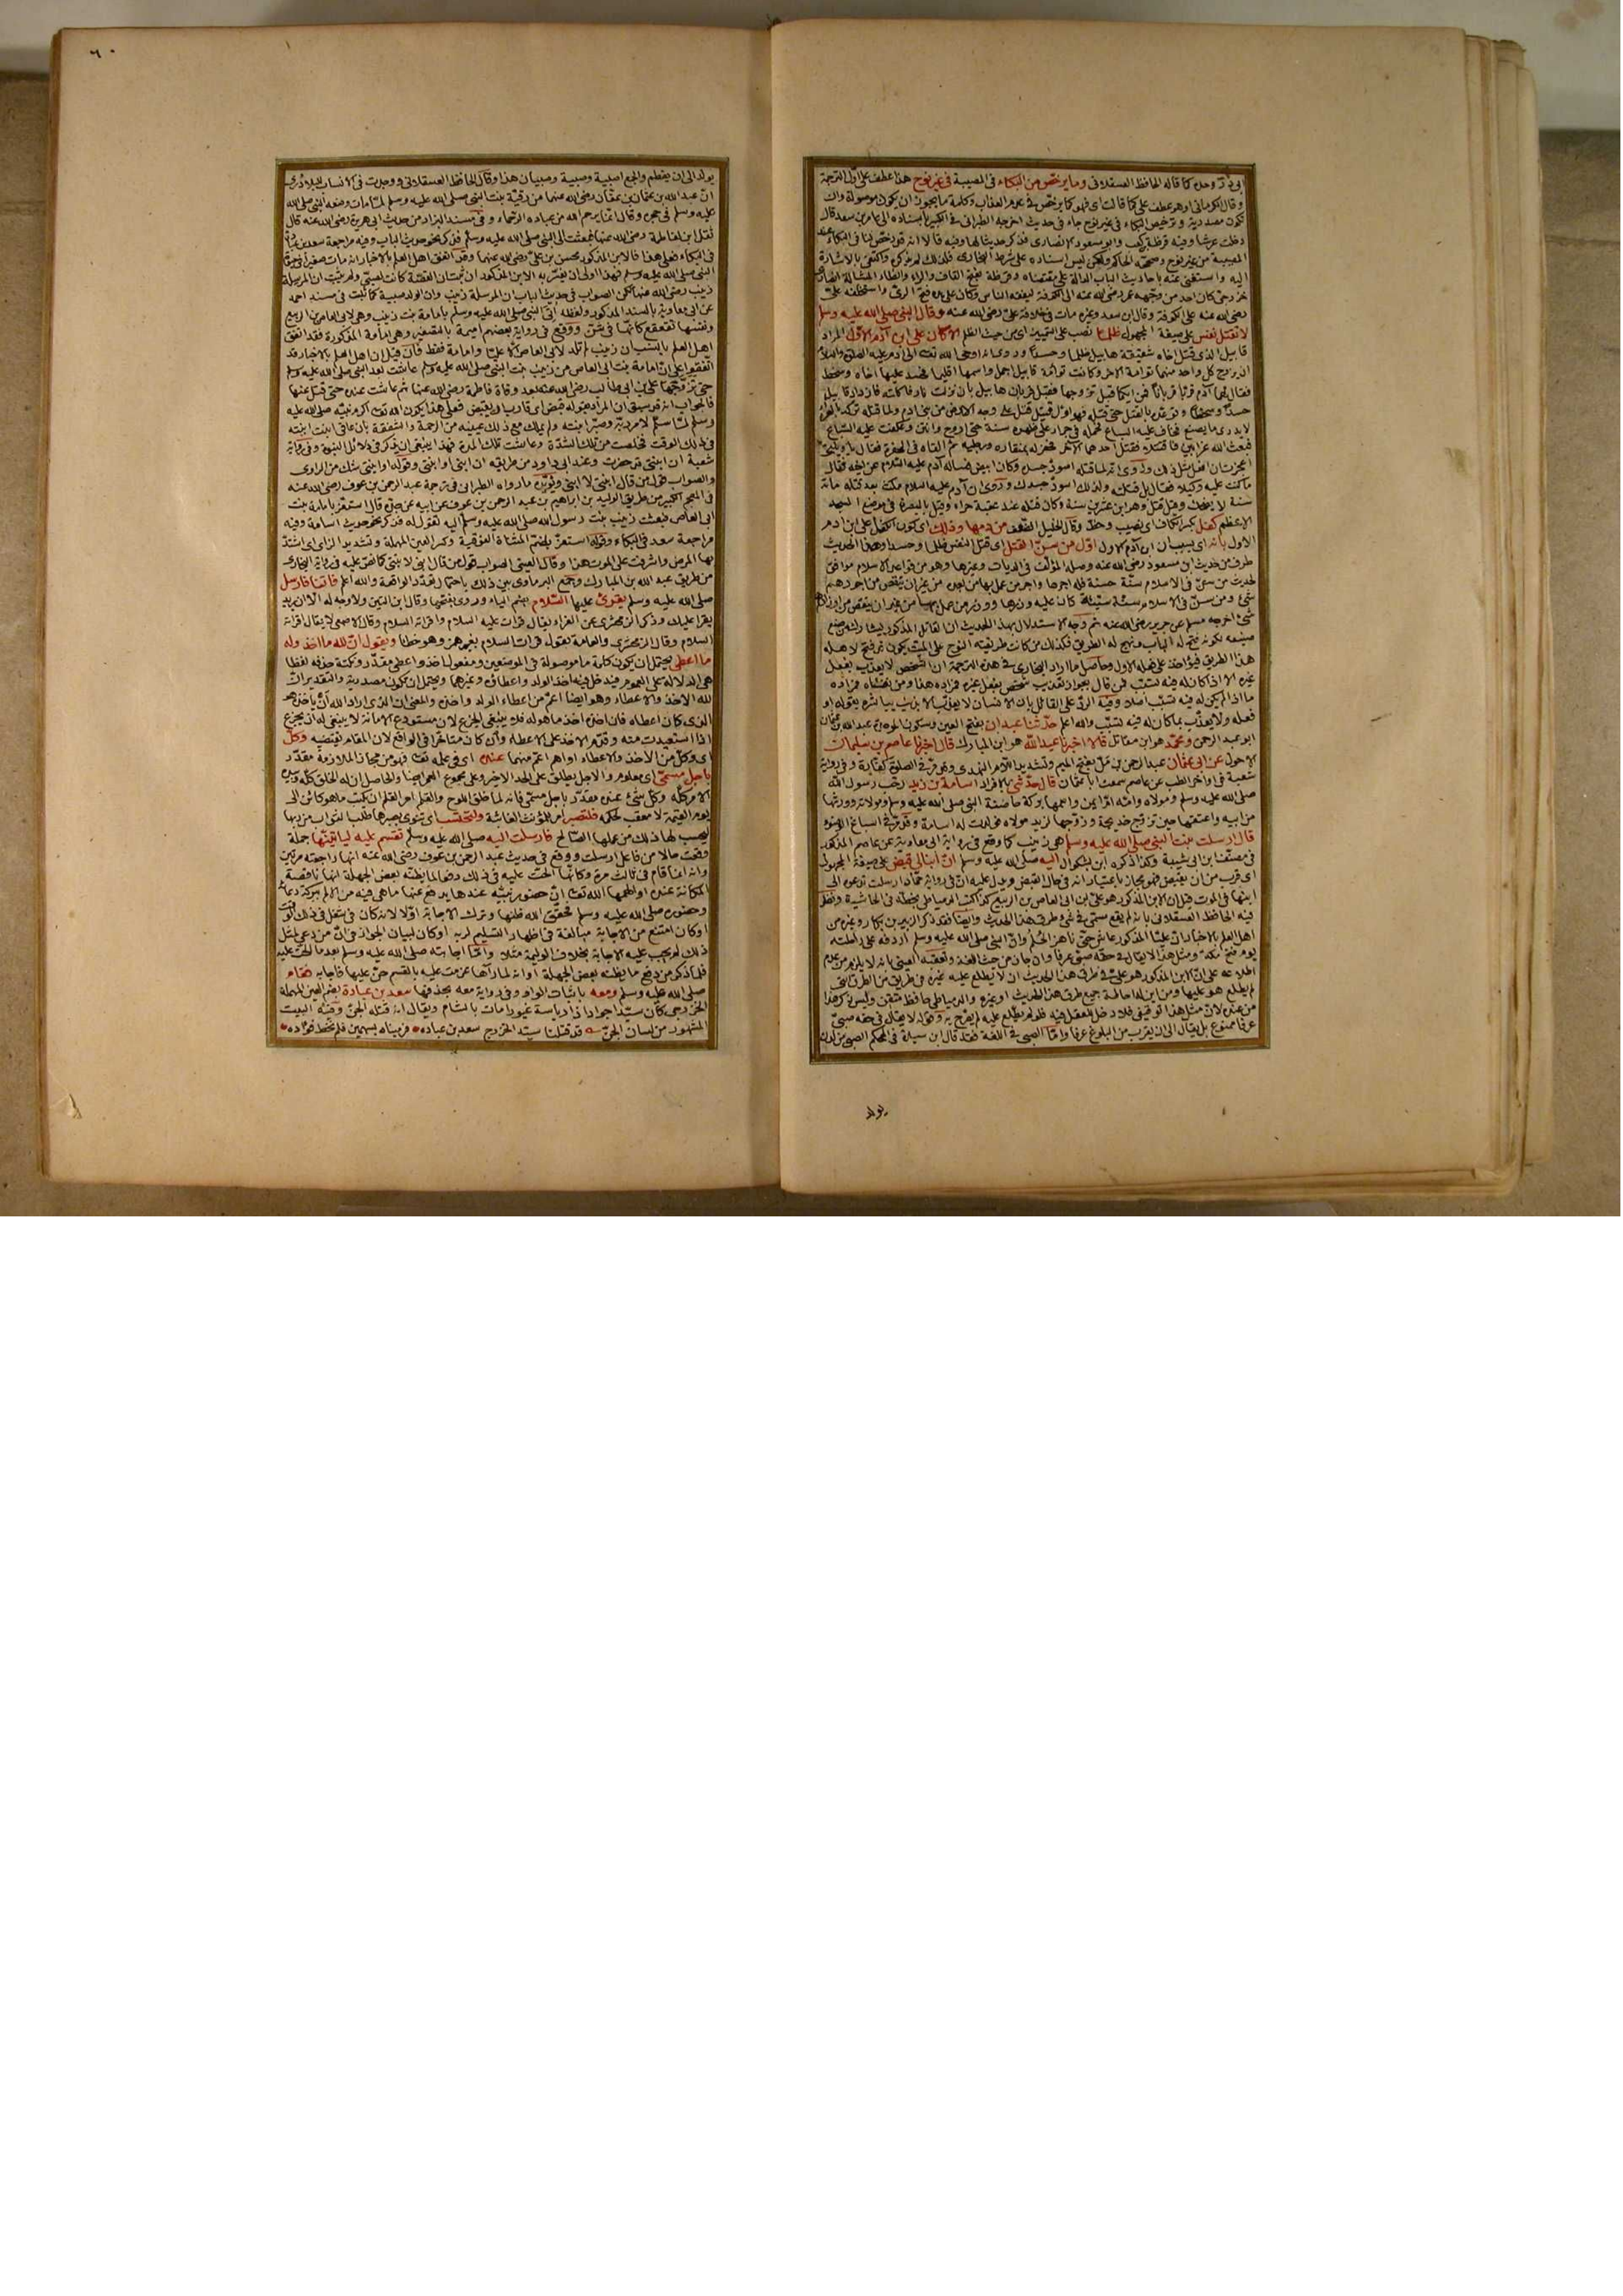 ابى ذر وحده كما قاله الحافظ العسقلانى وما يرخص من البكاء فى المصيبة فى غير نوح هذا عطف على اول الترجمة
وقال الكرمانى او هو عطف على كما قالت اى فهو كما يرخص فى عدم العذاب وكلمة ما يجوز ان يكون موصولة وان
تكون مصدرية وترخيص البكاء فى غير نوح جاء فى حديث اخرجه الطبرانى فى الكبير باسناده الى عامر بن سعد قال
دخلت عرسا وفيه قرظة بن كعب وابو مسعود الانصارى فذكر حديثا لهما وفيه قالا انه قد رخص لنا فى البكاء عند
المصيبة من غير نوح وصححه الحاكم ولكن ليس اسناده على شرط البخارى فلذلك لم يذكره واكتفى بالاشارة
اليه واستغنى عنه باحاديث الباب الدالة على مقتضاه وقرظة بفتح القاف والراء والظاء المشالة انصارى
خزرجى كان احد من وجهه عمر رضى الله عنه الى الكوفة ليفقه الناس وكان على يده فتح الرى واستخلفه على
رضى الله عنه على الكوفة وقال ابن سعد وغيره مات فى خلافة على رضى الله عنه وقال النبى صلى الله عليه وسلم
لا تقتل نفس على صيغة المجهول ظلما نصب على التمييز اى من حيث الظلم الا كان على ابن آدم الاول المراد
قابيل الذى قتل اخاه شقيقه هابيل ظلما وحسدا وروى انه اوحى الله تعالى الى آدم عليه الصلوة والسلام
ان يزوج كل واحد منهما توامة الاخر وكانت توامة قابيل اجمل واسمها اقليما فحسد عليها اخاه وسخط
فقال لهما آدم قربا قربانا فمن ايكما قبل تزوجها فقبل قربان هابيل بان نزلت نار فاكلته فازداد قابيل
حسدا وسخطا وتوعده بالقتل حتى قتله فهو اول قتيل قتل على وجه الارض من بنى ادم ولما قتله تركه بالعراء
لا يدرى ما يصنع به فخاف عليه السباع فحمله فى جراب على ظهره سنة حتى اروح وانتن وعكفت عليه السباع
فبعث الله غرابين فاقتتلا فقتل احدهما الاخر فحفر له بمنقاره ورجليه ثم القاه فى الحفرة فقال يا ويلتى
اعجزت ان افعل مثل ذلك وروى انه لما قتله اسود جسده وكان ابيض فساله آدم عليه السلام عن اخيه فقال
ما كنت عليه وكيلا فقال بل قتلته ولذلك اسود جسدك وروى ان آدم عليه السلام مكث بعد قتله مائة
سنة لا يضحك وقيل قتل وهو ابن عشرين سنة وكان قتله عند عقبة حراء وقيل بالبصرة فى موضع المسجد
الاعظم كفل بكسر الكاف اى نصيب وحظ وقال الخليل الضعف من دمها وذلك اى كون الكفل على ابن ادم
الاول بانه اى بسبب ان ابن آدم الاول اول من سن القتل اى قتل النفس ظلما وحسدا وهذا الحديث
طرف من حديث ابن مسعود رضى الله عنه وصله المؤلف فى الديات وغيرها وهو من قواعد الاسلام موافق
لحديث من سن فى الاسلام سنة حسنة فله اجرها واجر من عمل بها من بعده من غير ان ينقص من اجورهم
شئ ومن سن فى الاسلام سنة سيئة كان عليه وزرها ووزر من عمل بها من غير ان ينقص من اوزارهم
شئ اخرجه مسلم عن جرير رضى الله عنه ثم وجه الاستدلال بهذا الحديث ان القاتل المذكور يشارك من صنع
صنيعه لكونه فتح له الباب ونهج له الطريق فكذلك من كانت طريقته النوح على الميت يكون قد فتح لاهله
هذا الطريق فيؤاخذ على فعله الاول وحاصل ما اراد البخارى فى هذه الترجمة ان الشخص لا يعذب بفعل
غيره الا اذا كان له فيه تسبب فمن قال بجواز تعذيب شخص بفعل غيره فمراده هذا ومن نفاه فمراده
ما اذا لم يكن له فيه تسبب اصلا وفيه الرد على القائل بان الانسان لا يعذب الا بذنب يباشره بقوله او
فعله ولا يعذب بما كان له فيه تسبب والله اعلم حدثنا عبدان بفتح العين وسكون الموحدة عبد الله بن عثمان
ابو عبد الرحمن ومحمد هو ابن مقاتل قالا اخبرنا عبد الله هو ابن المبارك قال اخبرنا عاصم بن سليمان
الاحول عن ابى عثمان عبد الرحمن بن مل بفتح الميم وتشديد اللام النهدى وقد مر فى الصلوة كفارة وفى رواية
شعبة فى اواخر الطب عن عاصم سمعت ابا عثمان قال حدثنى بالافراد اسامة بن زيد رضى رسول الله
صلى الله عليه وسلم ومولاه وامه ام ايمن واسمها بركة حاضنة النبى صلى الله عليه وسلم ومولاته وورثها
من ابيه واعتقها حين تزوج خديجة وزوجها لزيد مولاه فولدت له اسامة وقد مر فى اسباغ الوضوء
قال ارسلت بنت النبى صلى الله عليه وسلم هى زينب كما وقع فى رواية ابى معاوية عن عاصم المذكور
فى مصنف ابن ابى شيبة وكذا ذكره ابن بشكوال اليه صلى الله عليه وسلم ان ابنا لى قبض على صيغة المجهول
اى قرب من ان يقبض فهو مجاز باعتبار انه فى حال القبض ويدل عليه ان فى رواية حماد ارسلت تدعوه الى
ابنها فى الموت قيل ان الابن المذكور هو على بن ابى العاص بن الربيع كذا كتب الدمياطى بخطه فى الحاشية ونظر
فيه الحافظ العسقلانى بانه لم يقع مسمى فى شئ من طرق هذا الحديث وايضا فقد ذكر الزبير بن بكار وغيره من
اهل العلم بالاخبار ان عليا المذكور عاش حتى ناهز الحلم وان النبى صلى الله عليه وسلم اردفه على راحلته
يوم فتح مكة ومثل هذا لا يقال فى حقه صبى عرفا وان جاز من حيث اللغة وتعقبه العينى بانه لا يلزم من عدم
اطلاعه على ان الابن المذكور هو على فى طرق هذا الحديث ان لا يطلع عليه غيره فى طريق من الطرق التى
لم يطلع هو عليها ومن اين له احاطة جميع طرق هذا الحديث او غيره والدمياطى حافظ متقن وليس ذكره هذا
من عنده لان مثل هذا توقيفى فلا دخل للعقل فيه فلو لم يطلع عليه لم يصرح به وقوله لا يقال فى حقه صبى
عرفا ممنوع بل يقال الى ان يقرب من البلوغ عرفا واما الصبى فى اللغة فقد قال ابن سيدة فى المحكم الصبى من لدن
يولد
٦٠
يولد الى ان يفطم والجمع اصبية وصبية وصبيان هذا وقال الحافظ العسقلانى ووجدت فى الانساب للبلاذرى
ان عبد الله بن عثمان بن عفان رضى الله عنهما من رقية بنت النبى صلى الله عليه وسلم لما مات وضعه النبى صلى الله
عليه وسلم فى حجره وقال انما يرحم الله من عباده الرحماء وفى مسند البزار من حديث ابى هريرة رضى الله عنه قال
ثقل ابن لفاطمة رضى الله عنها فبعثت الى النبى صلى الله عليه وسلم فذكر نحو حديث الباب وفيه مراجعة سعد بن عبادة
فى البكاء فعلى هذا فالابن المذكور محسن بن على رضى الله عنهما وقد اتفق اهل العلم بالاخبار انه مات صغيرا فى حياة
النبى صلى الله عليه وسلم فهذا اولى ان يفسر به الابن المذكور ان ثبت ان القصة كانت لصبى ولم يثبت ان المرسلة
زينب رضى الله عنها لكن الصواب فى حديث الباب ان المرسلة زينب وان الولد صبية كما ثبت فى مسند احمد
عن ابى معاوية بالسند المذكور ولفظه اتى النبى صلى الله عليه وسلم بامامة بنت زينب وهى لابى العاص بن الربيع
ونفسها تقعقع كانها فى شن ووقع فى رواية بعضهم اميمة بالتصغير وهى امامة المذكورة فقد اتفق
اهل العلم بالنسب ان زينب لم تلد لابى العاص الا عليا وامامة فقط فان قيل ان اهل العلم بالاخبار قد
اتفقوا على ان امامة بنت ابى العاص من زينب بنت النبى صلى الله عليه وسلم عاشت بعد النبى صلى الله عليه وسلم
حتى تزوجها على بن ابى طالب رضى الله عنه بعد وفاة فاطمة رضى الله عنها ثم عاشت عنده حتى قتل عنها
فالجواب انه قد سبق ان المراد بقوله قبض اى قارب ان يقبض فعلى هذا يكون الله تعالى اكرم نبيه صلى الله عليه
وسلم لما سلم لامر ربه وصبر ابنته ولم يملك مع ذلك عينيه من الرحمة والشفقة بان عافى ابنت ابنته
فى ذلك الوقت فخلصت من تلك الشدة وعاشت تلك المدة فهذا ينبغى ان يذكر فى دلائل النبوة وفى رواية
شعبة ان ابنتى قد حضرت وعند ابى داود من طريقه ان ابنى او ابنتى وقوله او ابنتى شك من الراوى
والصواب قول من قال ابنتى لا ابنى ويؤيده ما رواه الطبرانى فى ترجمة عبد الرحمن بن عوف رضى الله عنه
فى المعجم الكبير من طريق الوليد بن ابراهيم بن عبد الرحمن بن عوف عن ابيه عن جده قال استعز بامامة بنت
ابى العاص فبعثت زينب بنت رسول الله صلى الله عليه وسلم اليه تقول له فذكر نحو حديث اسامة وفيه
مراجعة سعد فى البكاء وقوله استعز بضم المثناة الفوقية وكسر العين المهملة وتشديد الزاى اى اشتد
بها المرض واشرفت على الموت هذا وقال العينى الصواب قول من قال ابنى لا ابنتى كما نص عليه فى رواية البخارى
من طريق عبد الله بن المبارك وجمع البرماوى بين ذلك باحتمال تعدد الواقعة والله اعلم فاتنا فارسل
صلى الله عليه وسلم يقرئ عليها السلام بضم الياء وروى بفتحها وقال ابن التين ولا وجه له الا ان يريد
يقرا عليك وذكر الزمخشرى عن الفراء يقال قرات عليه السلام واقراته السلام وقال الاصمعى لا يقال اقراته
السلام وقال الزمخشرى والعامة تقول قريت السلام بغير همز وهو خطا ويقول ان لله ما اخذ وله
ما اعطى يحتمل ان يكون كلمة ما موصولة فى الموضعين ومفعول اخذ واعطى مقدر ونكتة حذفه لفظا
هى الدلالة على العموم فيدخل فيه اخذ الولد واعطاؤه وغيرهما ويحتمل ان يكون مصدرية والتقدير ان
لله الاخذ والاعطاء وهو ايضا اعم من اعطاء الولد واخذه والمعنى ان الذى اراد الله ان ياخذ هو
الذى كان اعطاه فان اخذه اخذ ما هو له فلا ينبغى الجزع لان مستودع الامانة لا ينبغى له ان يجزع
اذا استعيدت منه وقدم الاخذ على الاعطاء وان كان متاخرا فى الواقع لان المقام يقتضيه وكل
اى وكل من الاخذ والاعطاء او اهم اعم منهما عنده اى فى علمه تعالى فهو من مجاز الملازمة مقدر
باجل مسمى اى معلوم والاجل يطلق على الحد الاخير وعلى مجموع العمر ايضا والحاصل ان له الخلق كله وبيده
الامر كله وكل شئ عنده مقدر باجل مسمى فانه لما خلق اللوح والقلم امر القلم ان يكتب ما هو كائن الى
يوم القيمة لا معقب لحكمه فلتصبر امر للمؤنث الغائبة ولتحتسب اى تنوى بصبرها طلب الثواب من ربها
ليحسب لها ذلك من عملها الصالح فارسلت اليه صلى الله عليه وسلم تقسم عليه لياتينها جملة
وقعت حالا من فاعل ارسلت ووقع فى حديث عبد الرحمن بن عوف رضى الله عنه انها راجعته مرتين
وانه انما قام فى ثالث مرة وكانها الحت عليه فى ذلك دفعا لما يظنه بعض الجهلة انها ناقصة
المكانة عنده او الهمها الله تعالى ان حضور نبيه عندها يدفع عنها ما هى فيه من الالم ببركة دعائه
وحضوره صلى الله عليه وسلم فحقق الله ظنها وترك الاجابة اولا لانه كان فى شغل فى ذلك الوقت
او كان امتنع من الاجابة مبالغة فى اظهار التسليم لربه او كان لبيان الجواز فى ان من دعى لمثل
ذلك لم يجب عليه الاجابة بخلاف الوليمة مثلا واما اجابته صلى الله عليه وسلم بعد ما الحت عليه
فلما ذكر من دفع ما يظنه بعض الجهلة او انه لما رآها عزمت عليه بالقسم حن عليها فاجابه فقام
صلى الله عليه وسلم ومعه باثبات الواو وفى رواية معه بحذفها سعد بن عبادة بضم العين المهملة
الخزرجى كان سيدا جوادا ذا رياسة غيورا مات بالشام ويقال انه قتله الجن وفيه البيت
المشهور من لسان الجن قد قتلنا سيد الخزرج سعد بن عباده فرميناه بسهمين فلم نخط فؤاده